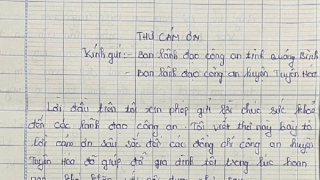 THƯ CẢM ƠN
Kính gửi: - Ban lãnh đạo công an tỉnh Quảng Bình
- Ban lãnh đạo công an huyện Tuyên Hoá
Lời đầu tiên tôi xin phép gửi lời chúc sức khoẻ
đến các lãnh đạo công an. Tôi viết thư này bày tỏ
lời cảm ơn sâu sắc đối các đồng chí công an huyện
Tuyên Hoá đã giúp đỡ gia đình tôi trong lúc hoạn